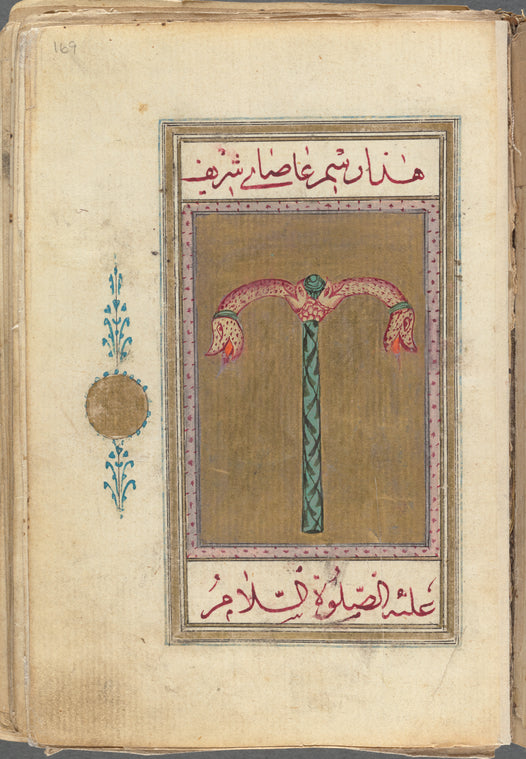 169
هٰذا رسْم عَاصَايِ شَرِيف
عَليْه الصّلوٰة السّلَامُ